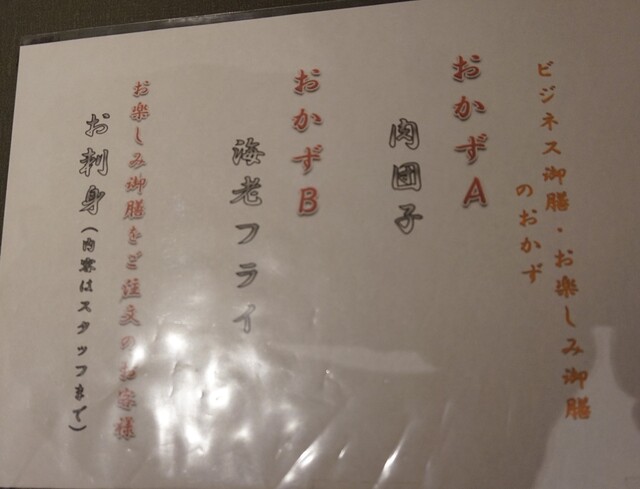 ビジネス御膳・お楽しみ御膳
のおかず
おかずA
肉団子
おかずB
海老フライ
お楽しみ御膳をご注文のお客様
お刺身(内容はスタッフまで)